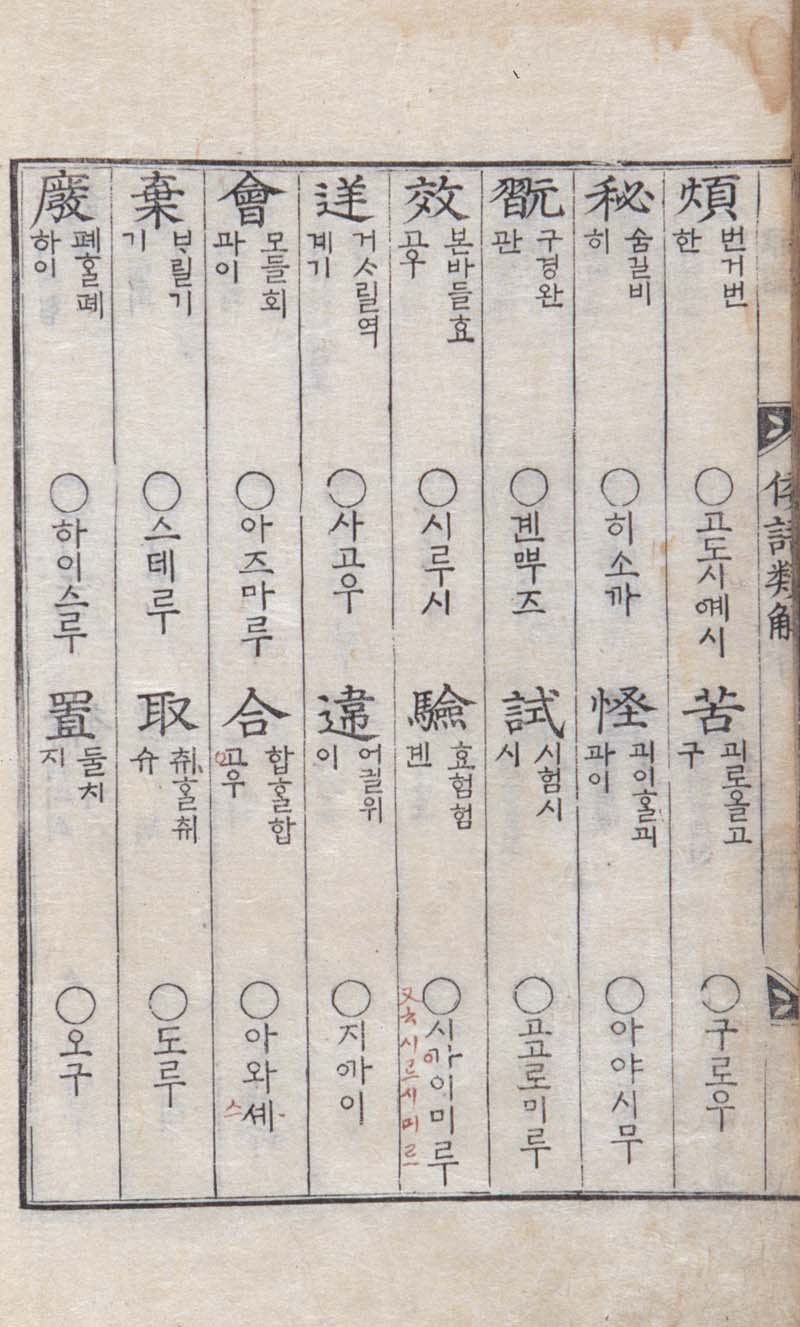 倭語類解
煩 번거번 한 ○고도시예시
苦 괴로올고 구 ○구로우
秘 숨길비 히 ○히소까
怪 괴이홀괴 과이 ○아야시무
翫 구경완 관 ○겐뿌즈
試 시험시 시 ○고고로미루
效 본바들효 고우 ○시루시
驗 효험험 겐 ○시까이미루
逆 거스릴역 계기 ○사고우
違 어긜위 이 ○지까이
會 모들회 과이 ○아즈마루
合 합홀합 고우 ○아와셰
스
棄 ᄇᆞ릴기 기 ○스테루
取 취홀취 슈 ○도루
廢 폐홀폐 하이 ○하이스루
置 둘치 지 ○오구